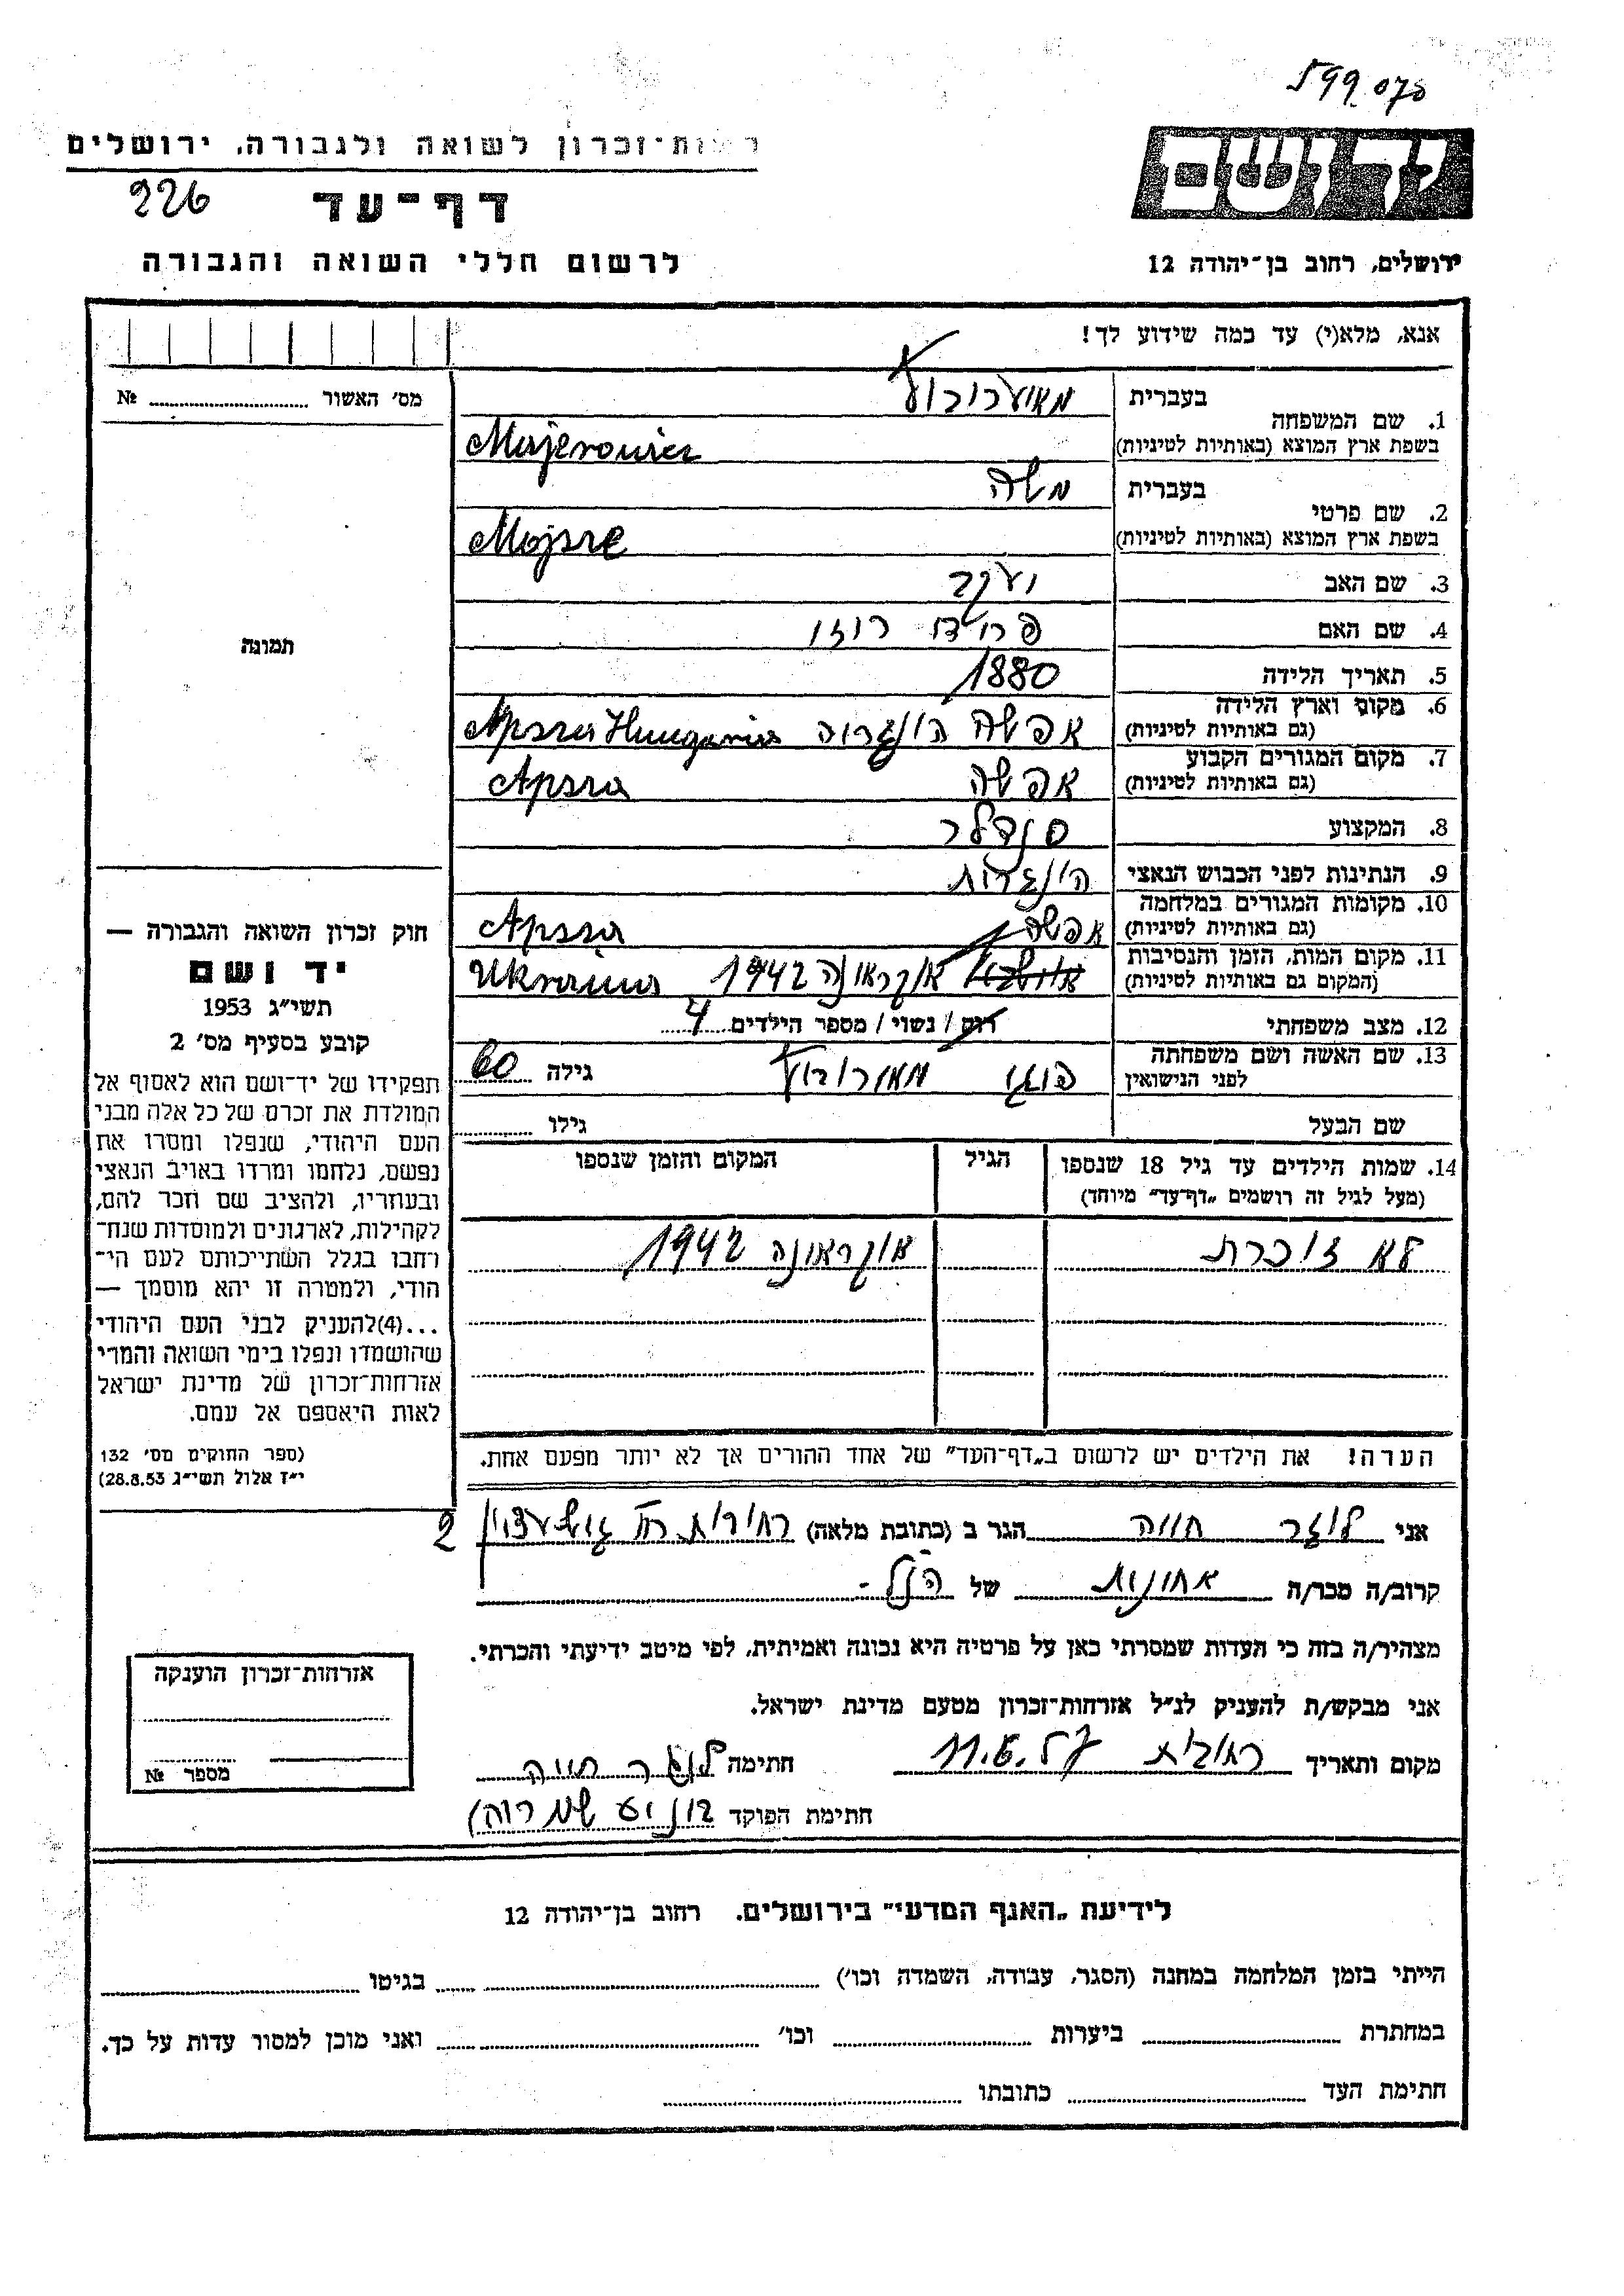 רשות-זכרון לשואה ולגבורה, ירושלים
226
דף-עד
לרשום חללי השואה והגבורה
יד ושם
ירושלים, רחוב בן-יהודה 12
אנא, מלא(י) עד כמה שידוע לך!
מס׳ האשור № 
1. שם המשפחה
בעברית
בשפת ארץ המוצא (באותיות לטיניות)
2. שם פרטי
בעברית משה
בשפת ארץ המוצא (באותיות לטיניות)
3. שם האב יעקב
4. שם האם
5. תאריך הלידה 1880
6. מקום וארץ הלידה
(גם באותיות לטיניות) אפשה
7. מקום המגורים הקבוע
(גם באותיות לטיניות) אפשה
8. המקצוע סנדלר
9. הנתינות לפני הכבוש הנאצי
10. מקומות המגורים במלחמה
(גם באותיות לטיניות) אפשה
11. מקום המות, הזמן והנסיבות
(המקום גם באותיות לטיניות) אוקראינה 1942
12. מצב משפחתי רווק / נשוי / מספר הילדים 4
13. שם האשה ושם משפחתה
לפני הנישואין גילה 60
שם הבעל גילו
14. שמות הילדים עד גיל 18 שנספו הגיל המקום והזמן שנספו
(מעל לגיל זה רושמים „דף-עד״ מיוחד)
לא זוכרת אוקראינה 1942
הערה! את הילדים יש לרשום ב„דף-העד״ של אחד ההורים אך לא יותר מפעם אחת.
תמונה
חוק זכרון השואה והגבורה —
יד ושם
תשי״ג 1953
קובע בסעיף מס׳ 2
תפקידו של יד-ושם הוא לאסוף אל
המולדת את זכרם של כל אלה מבני
העם היהודי, שנפלו ומסרו את
נפשם, נלחמו ומרדו באויב הנאצי
ובעוזריו, ולהציב שם וזכר להם,
לקהילות, לארגונים ולמוסדות שנח-
רחבו בגלל השתייכותם לעם הי-
הודי, ולמטרה זו יהא מוסמך —
...(4)להעניק לבני העם היהודי
שהושמדו ונפלו בימי השואה והמרי
אזרחות-זכרון של מדינת ישראל
לאות היאספם אל עמם.
(ספר החוקים מס׳ 132
י״ז אלול תשי״ג 28.8.53)
אני לוזר חווה הגר ב (כתובת מלאה) רחובות
קרוב/ה מכר/ה של הנ״ל -
מצהיר/ה בזה כי העדות שמסרתי כאן על פרטיה היא נכונה ואמיתית, לפי מיטב ידיעתי והכרתי.
אני מבקש/ת להעניק לנ״ל אזרחות-זכרון מטעם מדינת ישראל.
מקום ותאריך רחובות חתימה לוזר חווה
חתימת הפוקד
אזרחות-זכרון הוענקה
מספר №
לידיעת „האגף המדעי״ בירושלים. רחוב בן-יהודה 12
הייתי בזמן המלחמה במחנה (הסגר, עבודה, השמדה וכו׳) בגיטו
במחתרת ביערות וכו׳ ואני מוכן למסור עדות על כך.
חתימת העד כתובתו